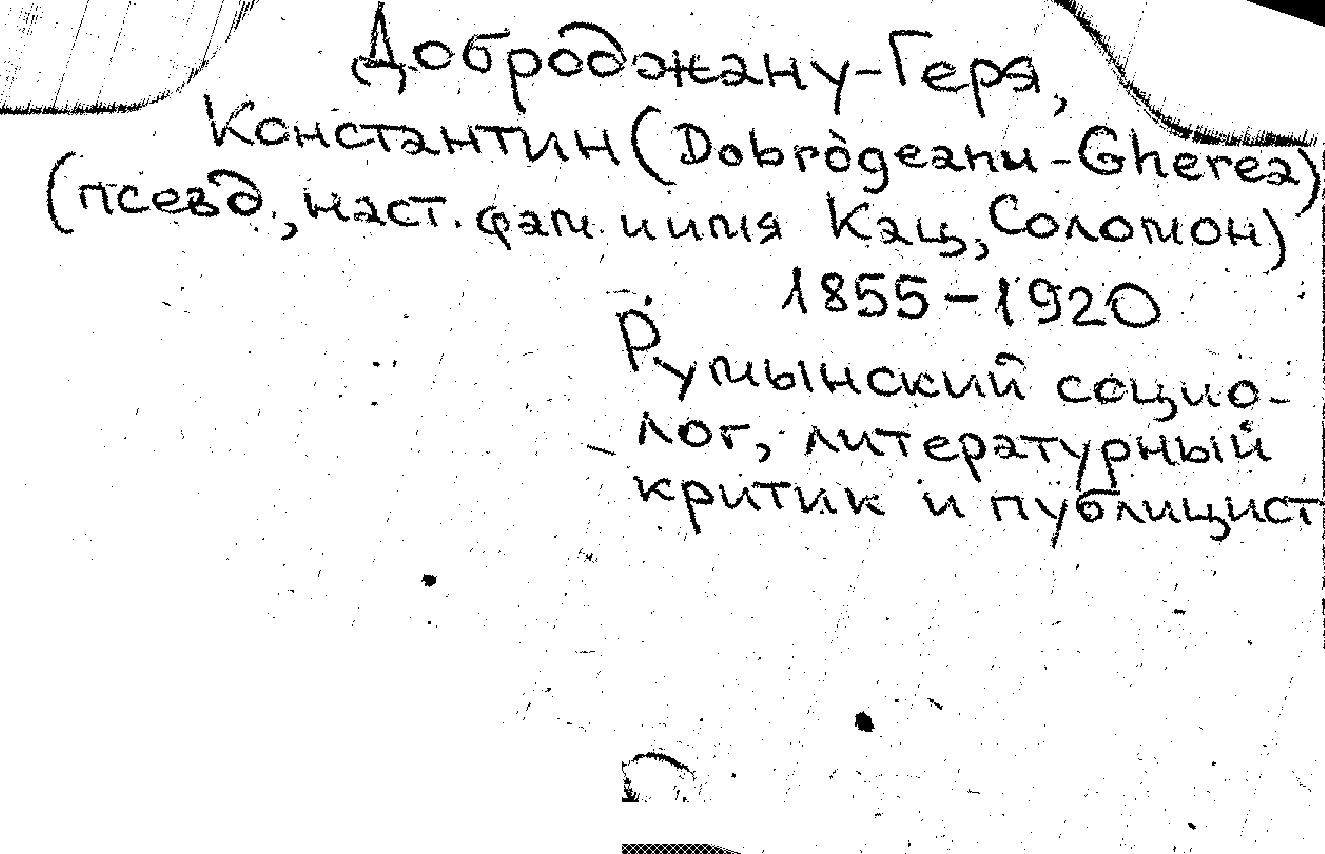 Доброджану-Геря,
Константин (Dobrògeanu-Gherea)
(псевд., наст. фам. и имя Кац, Соломон)
1855-1920
Румынский социо-
лог, литературный
критик и публицист